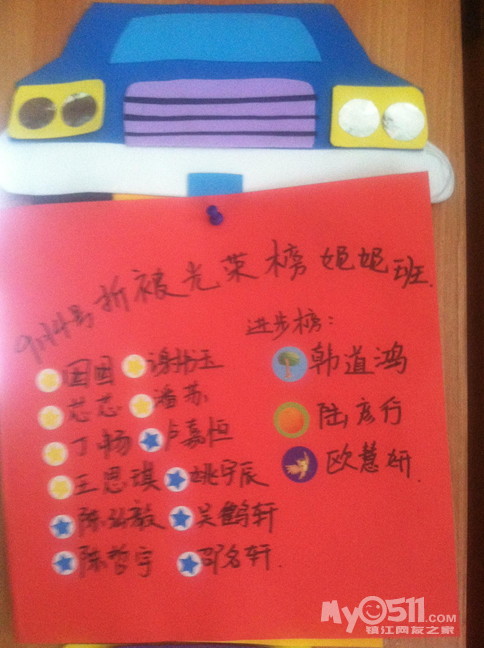 9月14号折被光荣榜 妮妮班.
进步榜:
园园 谢书玉
芯芯 潘苏
丁畅 卢嘉恒
王思琪 姚宇辰
陈弘毅 吴鹤轩
陈哲宇 邵名轩.
韩道鸿
陆彦行
欧慧妍.
My0511.com
镇江网友之家